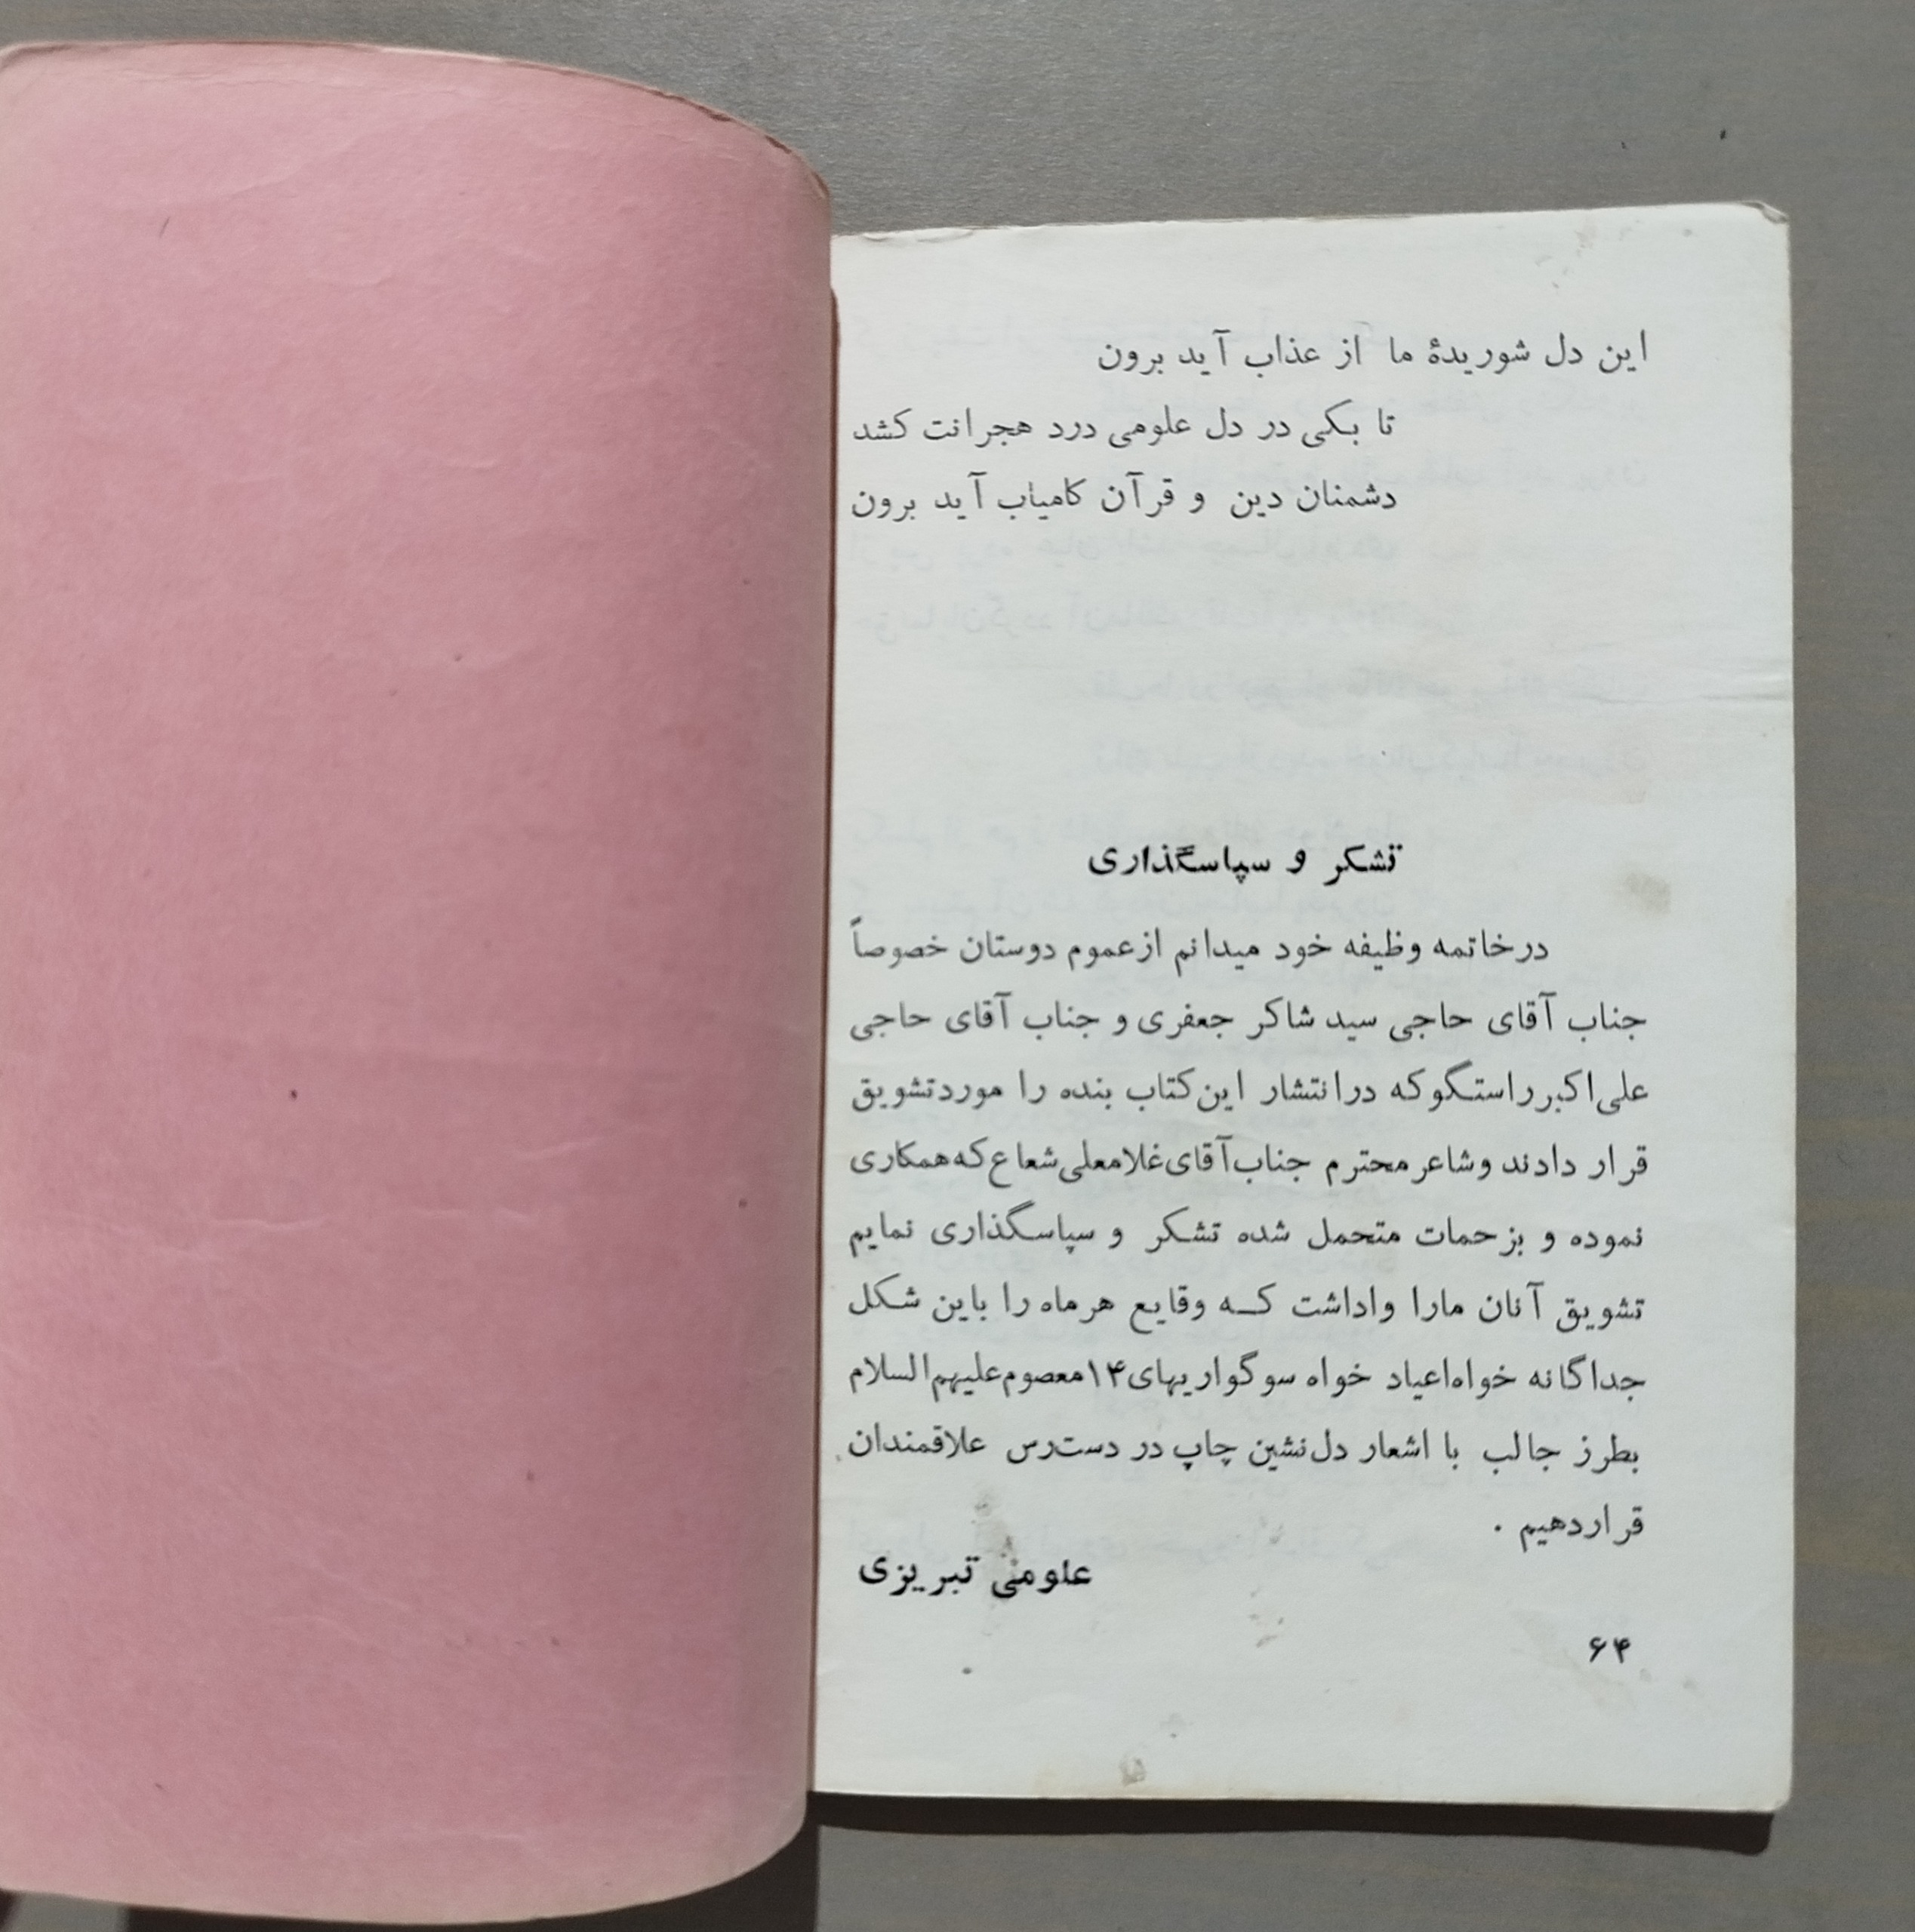 این دل شوریدهٔ ما از عذاب آید برون
تا بکی در دل علومی درد هجرانت کشد
دشمنان دین و قرآن کامیاب آید برون
تشکر و سپاسگذاری
در خاتمه وظیفه خود میدانم از عموم دوستان خصوصاً
جناب آقای حاجی سید شاکر جعفری و جناب آقای حاجی
علی‌اکبر راستگو که در انتشار این کتاب بنده را مورد تشویق
قرار دادند و شاعر محترم جناب آقای غلامعلی شعاع که همکاری
نموده و بزحمات متحمل شده تشکر و سپاسگذاری نمایم
تشویق آنان مارا واداشت کـه وقایع هر ماه را باین شکل
جداگانه خواه اعیاد خواه سوگواریهای ۱۴ معصوم علیهم السلام
بطرز جالب با اشعار دل‌نشین چاپ در دست‌رس علاقمندان
قراردهیم .
علومی تبریزی
۶۴